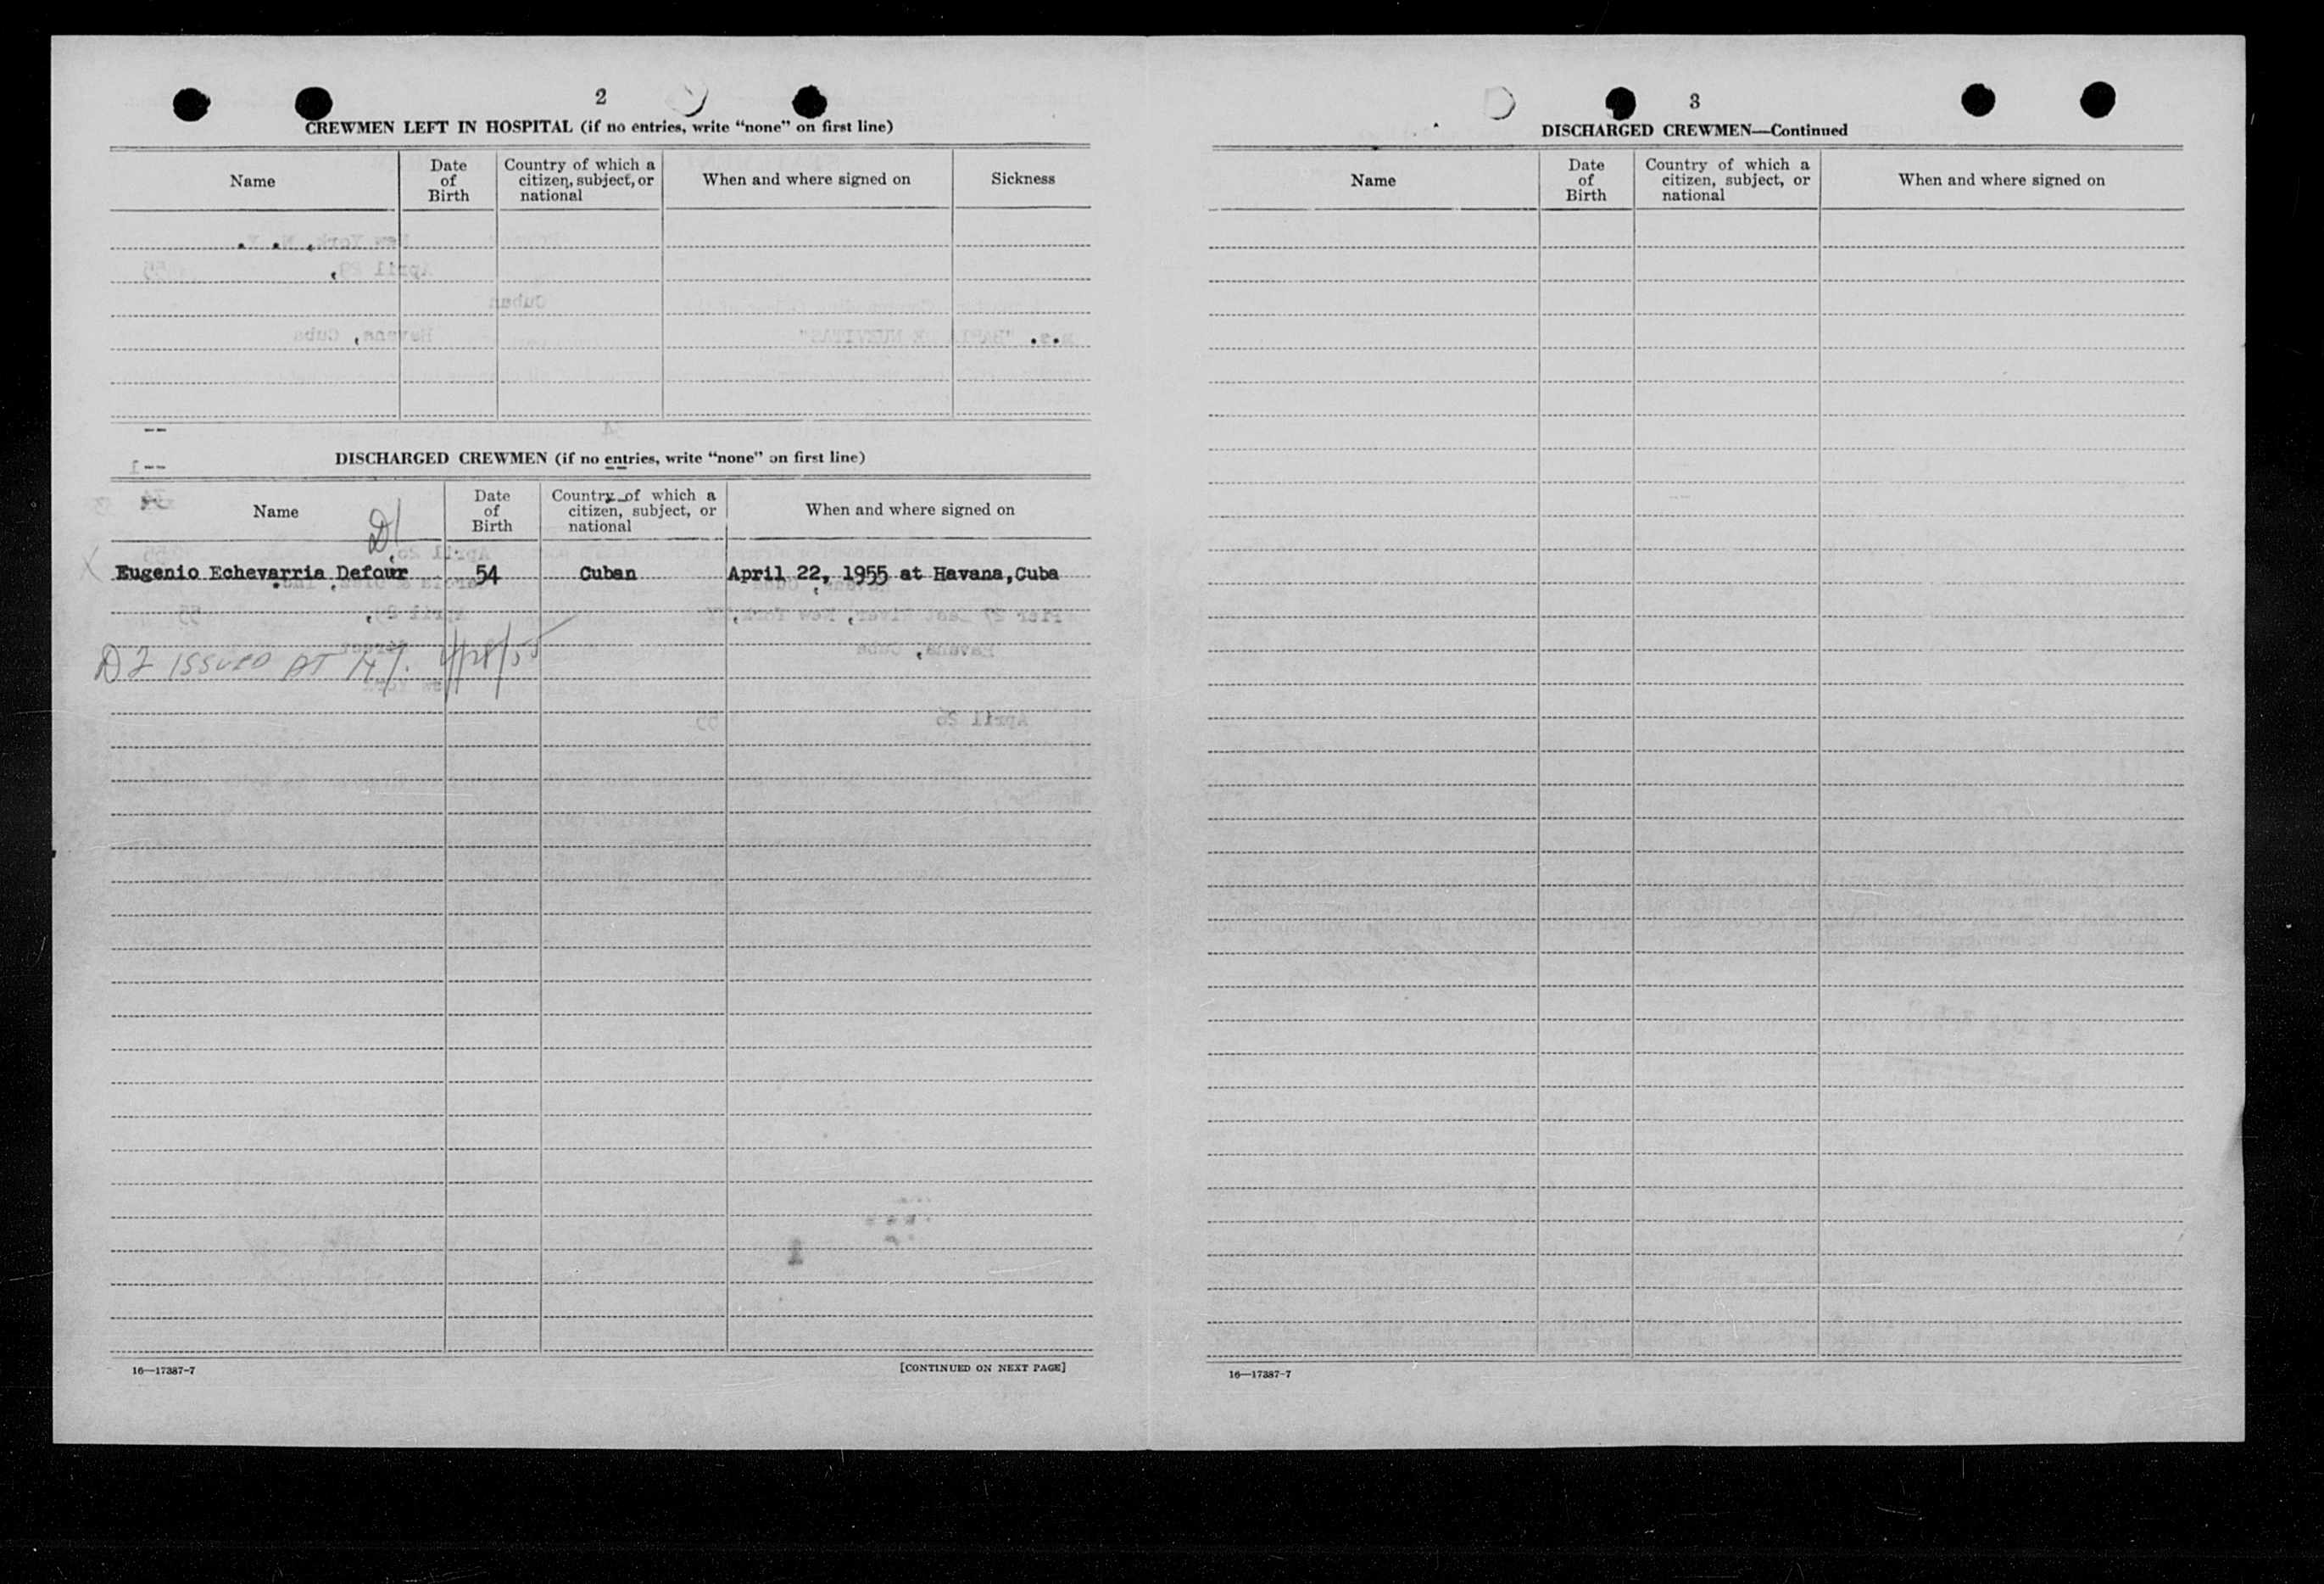 2
CREWMEN LEFT IN HOSPITAL (if no entries, write "none" on first line)
Name
Date of Birth
Country of which a citizen, subject, or national
When and where signed on
Sickness
DISCHARGED CREWMEN (if no entries, write "none" on first line)
Name
Date of Birth
Country of which a citizen, subject, or national
When and where signed on
D1
X
Eugenio Echevarria Defour 54 Cuban April 22, 1955 at Havana, Cuba
ISSUED AT N.Y. 4/28/55
16—17387-7
[CONTINUED ON NEXT PAGE]
3
DISCHARGED CREWMEN—Continued
Name
Date of Birth
Country of which a citizen, subject, or national
When and where signed on
16—17387-7